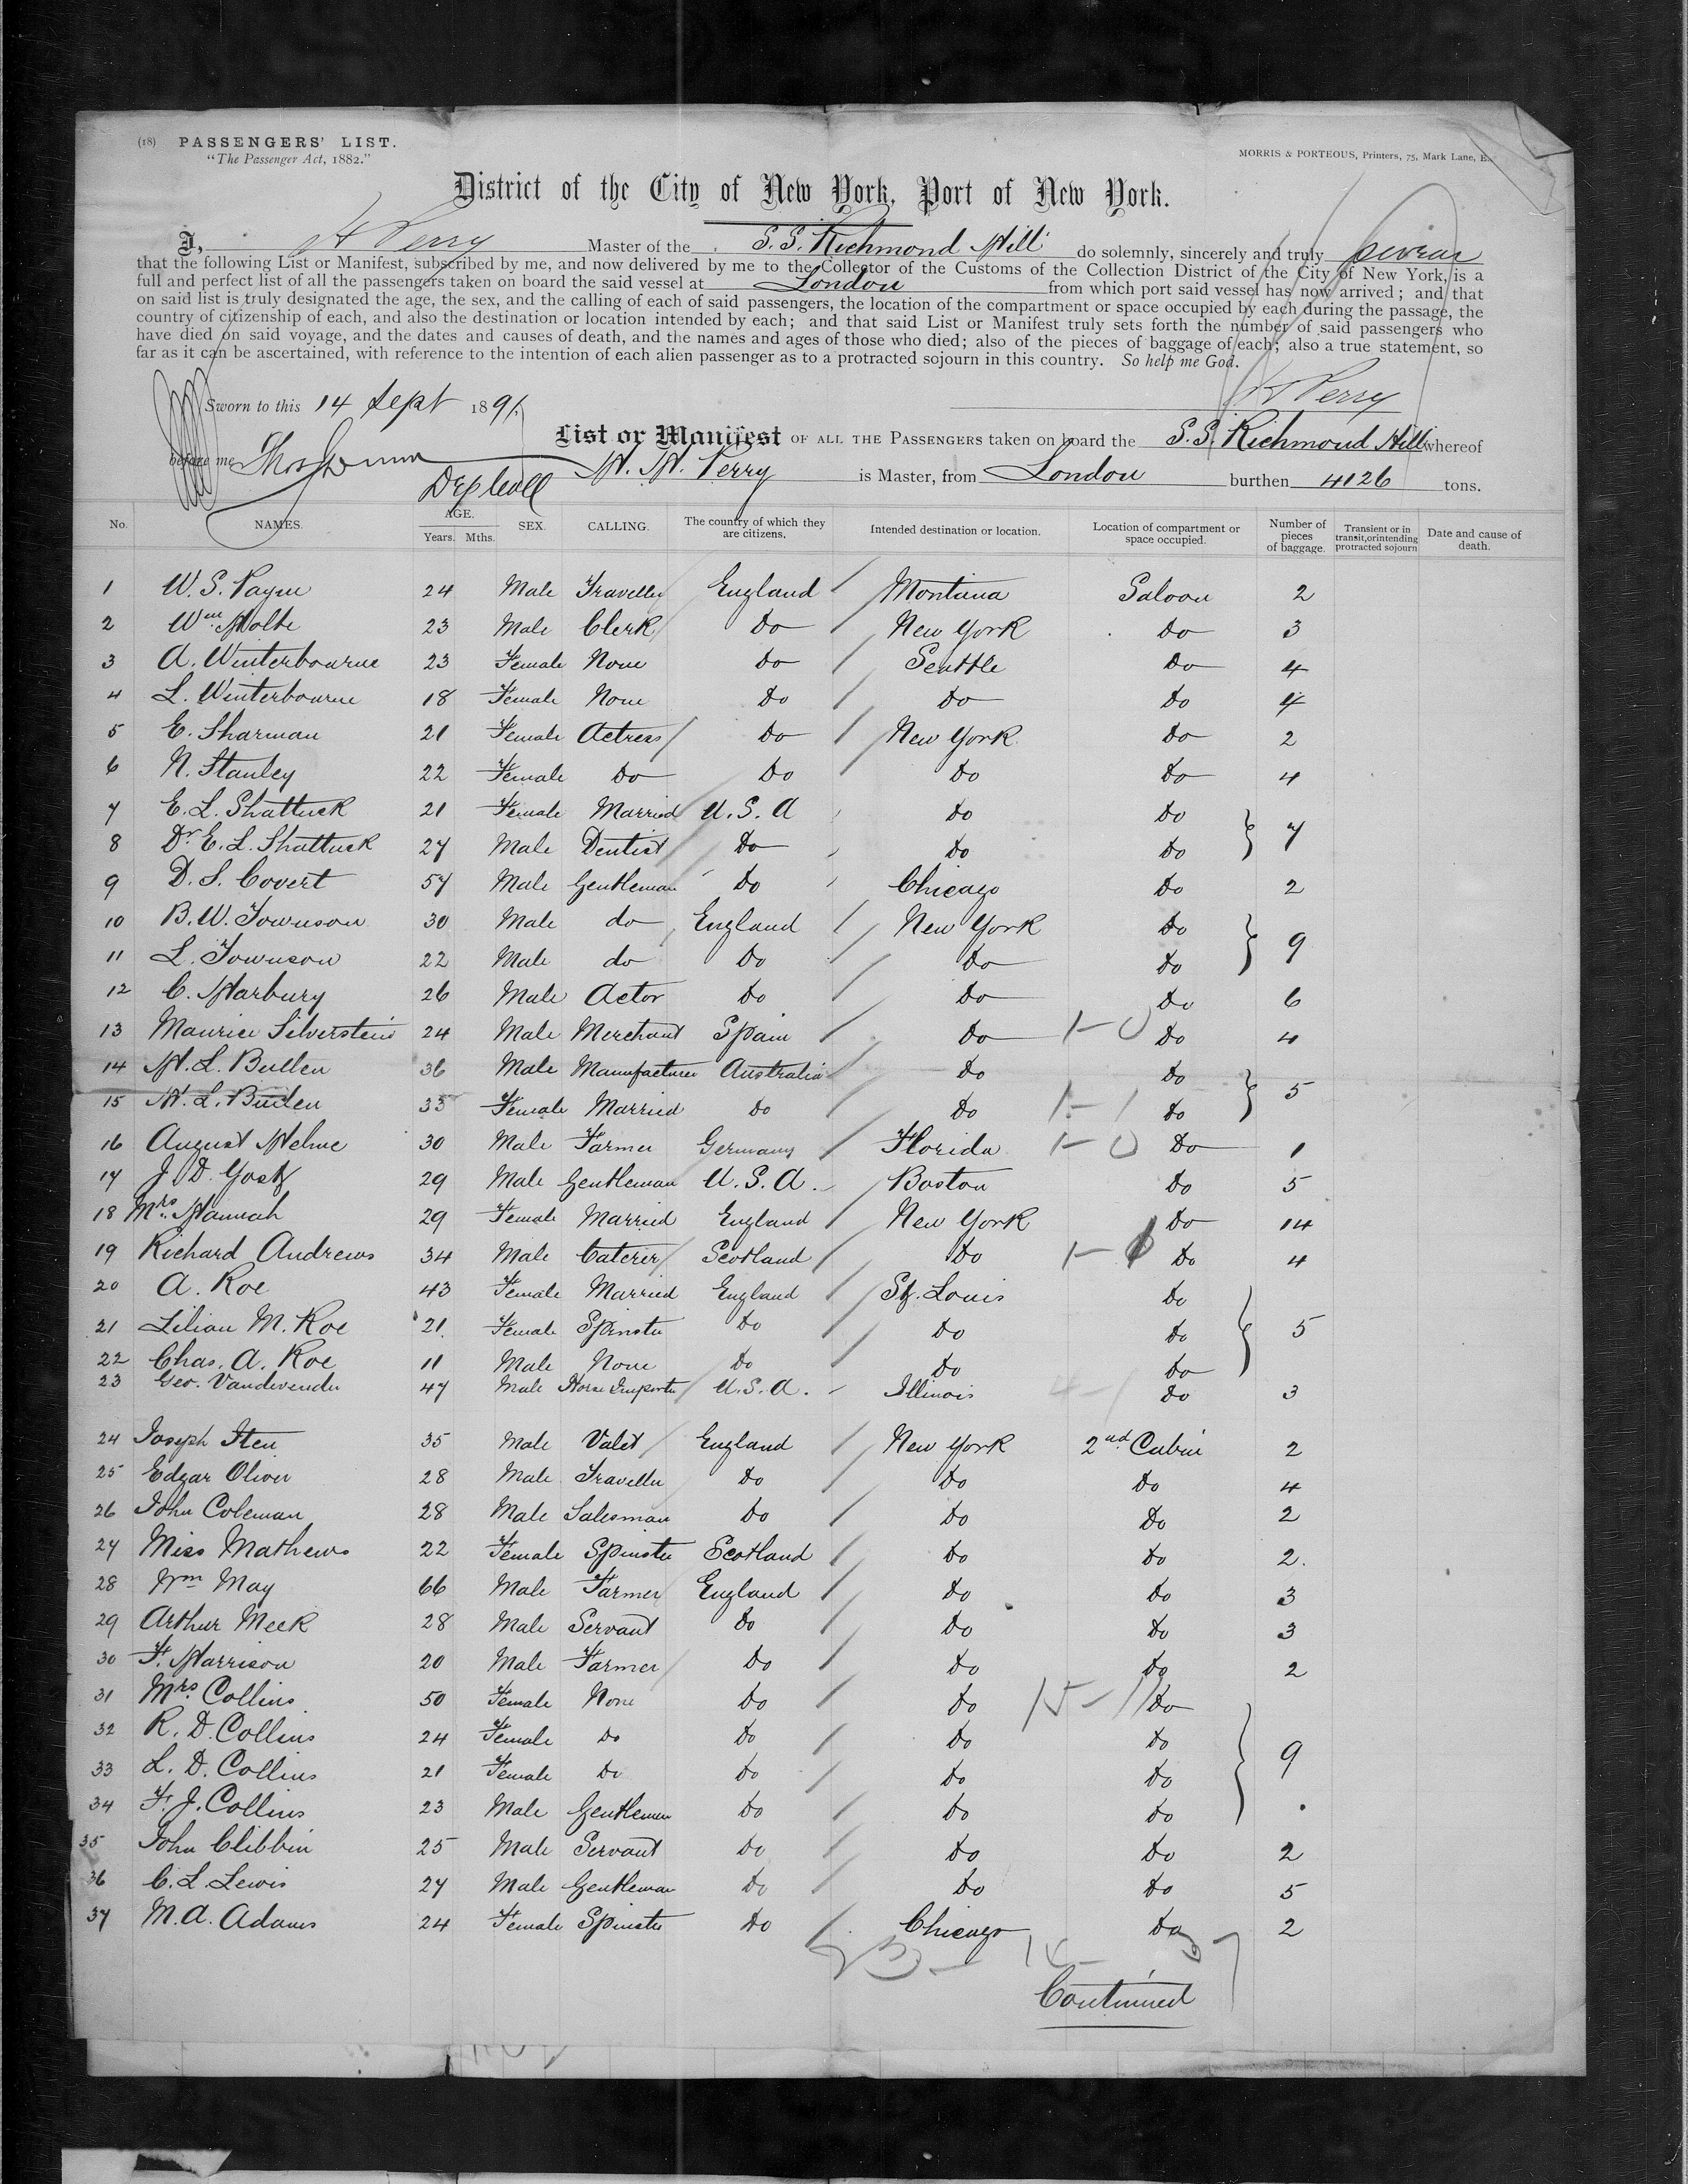 (18) PASSENGERS' LIST.
"The Passenger Act, 1882."
MORRIS & PORTEOUS, Printers, 75, Mark Lane, E.
District of the City of New York, Port of New York.
I, H Perry Master of the S.S. Richmond Hill do solemnly, sincerely and truly swear
that the following List or Manifest, subscribed by me, and now delivered by me to the Collector of the Customs of the Collection District of the City of New York, is a
full and perfect list of all the passengers taken on board the said vessel at London from which port said vessel has now arrived; and that
on said list is truly designated the age, the sex, and the calling of each of said passengers, the location of the compartment or space occupied by each during the passage, the
country of citizenship of each, and also the destination or location intended by each; and that said List or Manifest truly sets forth the number of said passengers who
have died on said voyage, and the dates and causes of death, and the names and ages of those who died; also of the pieces of baggage of each; also a true statement, so
far as it can be ascertained, with reference to the intention of each alien passenger as to a protracted sojourn in this country. So help me God.
H Perry
Sworn to this 14 Sept 1891.
List or Manifest OF ALL THE PASSENGERS taken on board the S.S. Richmond Hill whereof
before me
H. H. Perry is Master, from London burthen 4126 tons.
Dep Coll
No. NAMES. AGE. Years. Mths. SEX. CALLING. The country of which they are citizens. Intended destination or location. Location of compartment or space occupied. Number of pieces of baggage. Transient or in transit, or intending protracted sojourn Date and cause of death.
1 W. S. Payne 24 Male Traveller England Montana Saloon 2
2 Wm Holte 23 Male Clerk Do New York Do 3
3 A. Winterbourne 23 Female None Do Seattle Do 4
4 L. Winterbourne 18 Female None Do Do Do 4
5 E. Sharman 21 Female Actress Do New York Do 2
6 N. Stanley 22 Female Do Do Do Do 4
7 E. L. Shattuck 21 Female Married U.S.A Do Do
8 Dr E. L. Shattuck 27 Male Dentist Do Do Do 7
9 D. S. Covert 57 Male Gentleman Do Chicago Do 2
10 B. W. Townson 30 Male do England New York Do
11 L. Townson 22 Male do Do Do Do 9
12 C. Harbury 26 Male Actor Do Do Do 6
13 Maurice Silverstein 24 Male Merchant Spain Do 1-0 Do 4
14 H. L. Bullen 36 Male Manufacturer Australia Do Do
15 H. L. Bullen 35 Female Married Do Do 1-1 Do 5
16 August Helme 30 Male Farmer Germany Florida 1-0 Do 1
17 J. D. Yost 29 Male Gentleman U.S.A. Boston Do 5
18 Mrs. Hannah 29 Female Married England New York Do 14
19 Richard Andrews 34 Male Caterer Scotland Do 1-0 Do 4
20 A. Roe 43 Female Married England St. Louis Do
21 Lilian M. Roe 21 Female Spinster Do Do Do 5
22 Chas. A. Roe 11 Male None Do Do Do
23 Geo. Vandevender 47 Male Horse Importer U.S.A. Illinois 4-1 Do 3
24 Joseph Iten 35 Male Valet England New York 2nd Cabin 2
25 Edgar Oliver 28 Male Traveller Do Do Do 4
26 John Coleman 28 Male Salesman Do Do Do 2
27 Miss Mathews 22 Female Spinster Scotland Do Do 2.
28 Wm May 66 Male Farmer England Do Do 3
29 Arthur Meek 28 Male Servant Do Do Do 3
30 F. Harrison 20 Male Farmer Do Do Do 2
31 Mrs. Collins 50 Female None Do Do 15-11 Do
32 R. D. Collins 24 Female Do Do Do Do
33 L. D. Collins 21 Female Do Do Do Do 9
34 F. J. Collins 23 Male Gentleman Do Do Do
35 John Clibbin 25 Male Servant Do Do Do 2
36 C. L. Lewis 27 Male Gentleman Do Do Do 5
37 M. A. Adams 24 Female Spinster Do Chicago Do 2
23- 14- 37
Continued